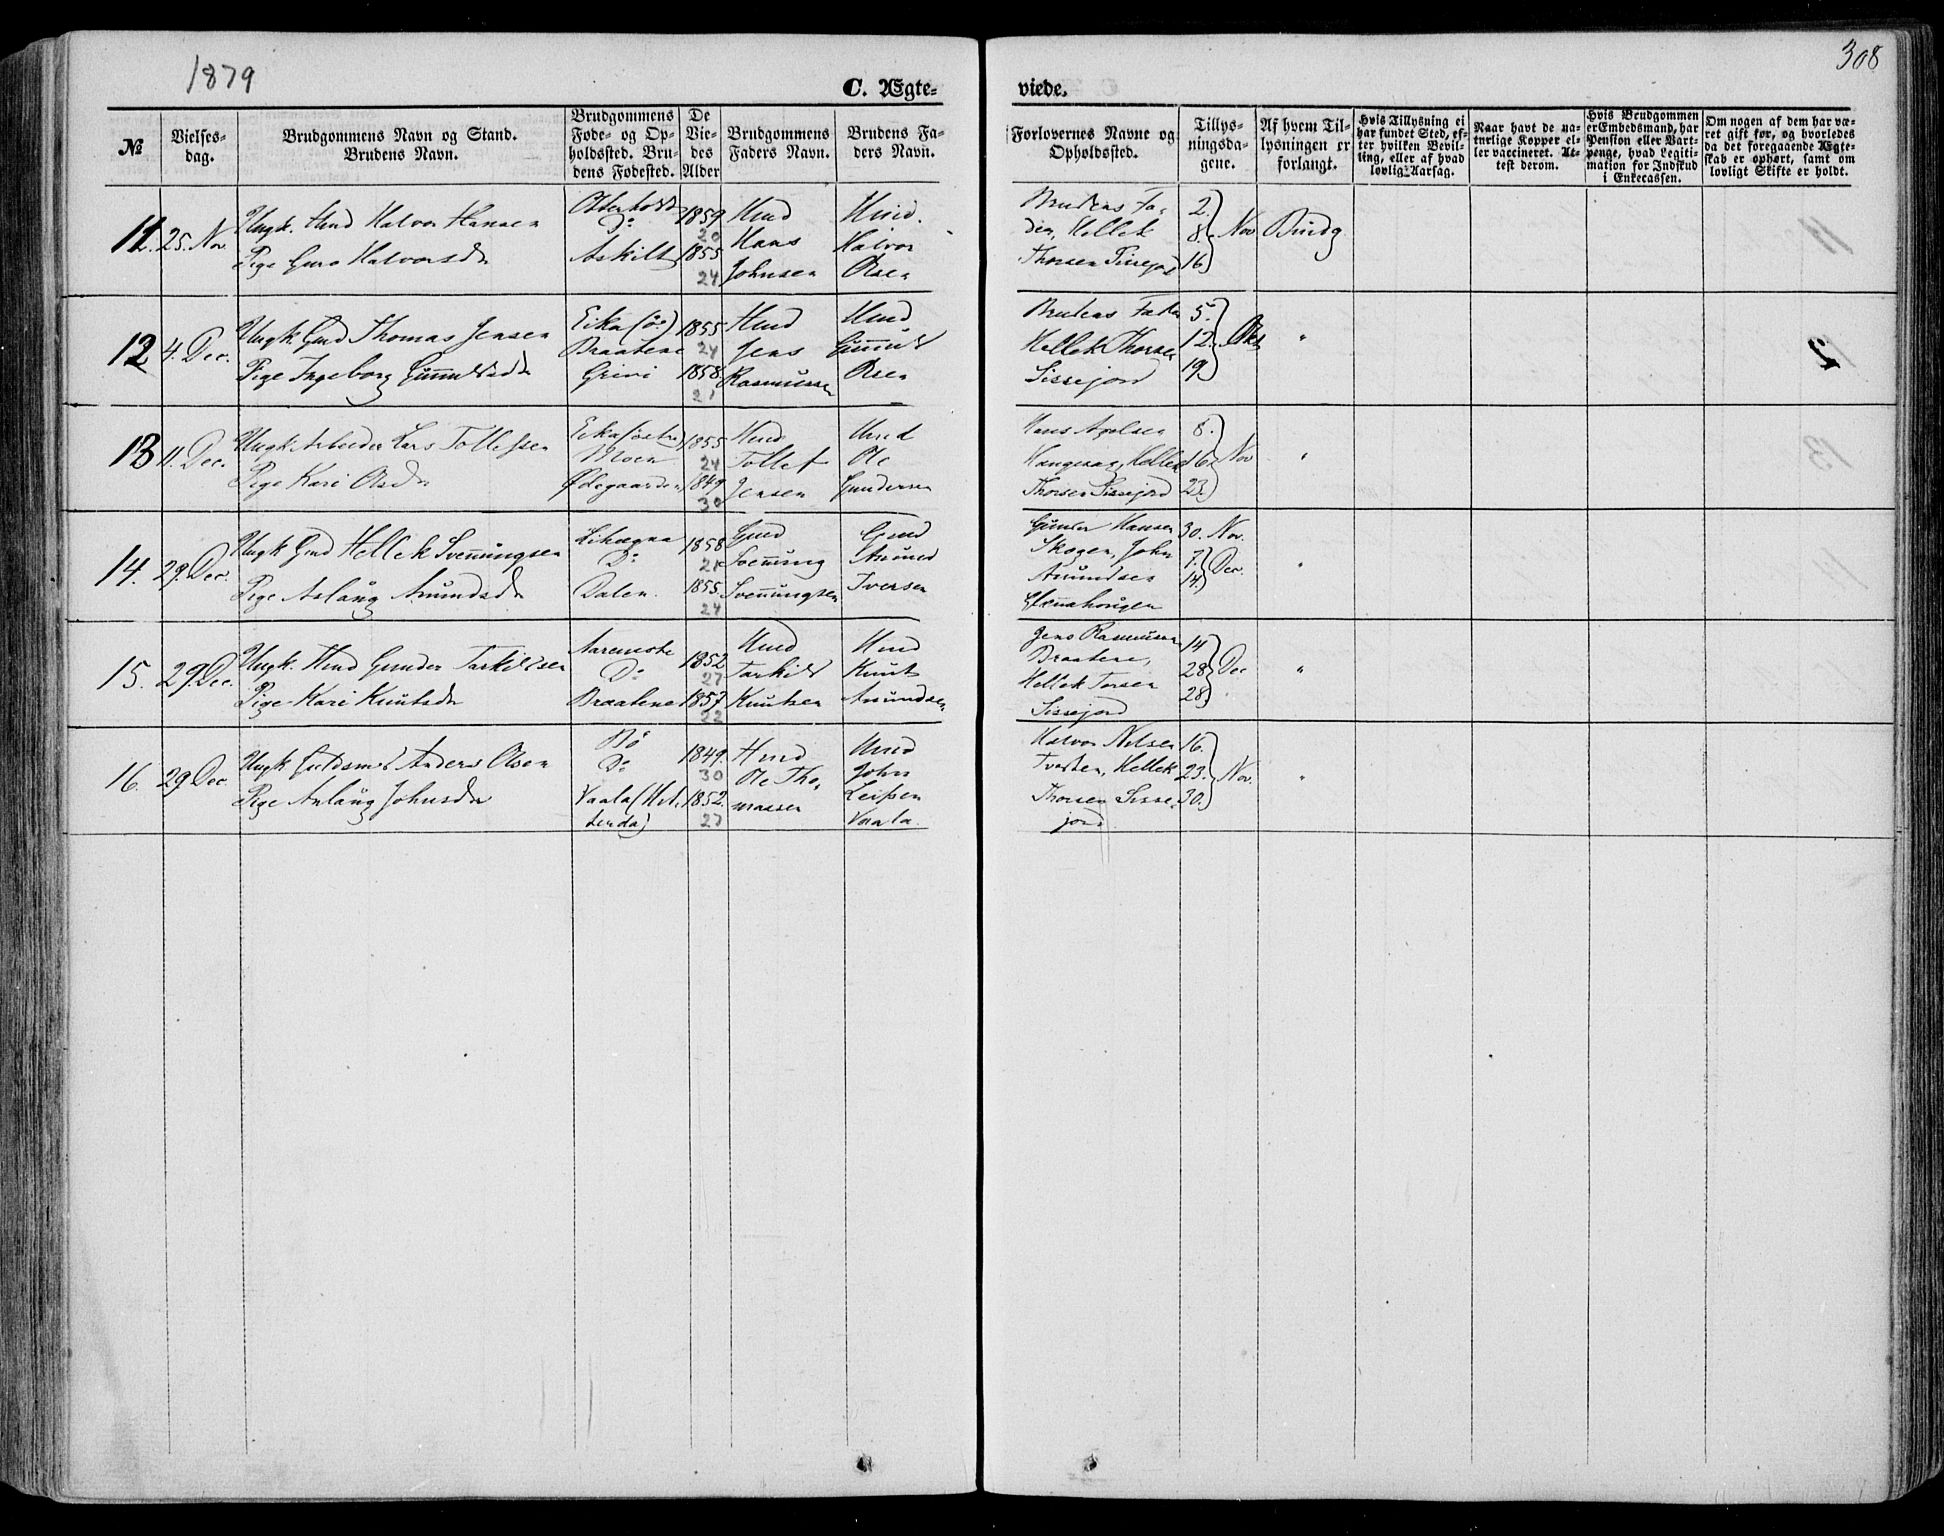 1879
C. Ægte-
viede.
308
№
Vielses-
dag.
Brudgommens Navn og Stand.
Brudens Navn.
Brudgommens
Føde- og Op-
holdssted. Bru-
dens Fødested.
De
Vie-
des
Alder
Brudgommens
Faders Navn.
Brudens Fa-
ders Navn.
Forlovernes Navne og
Opholdssted.
Tillys-
ningsda-
gene.
Af hvem Til-
lysningen er
forlangt.
Hvis Tillysning ei
har fundet Sted, ef-
ter hvilken Bevil-
ling, eller af hvad
lovlig Aarsag.
Naar havt de na-
turlige Kopper el-
ler vaccineret. At-
test derom.
Hvis Brudgommen
er Embedsmand, har
Pension eller Vart-
penge, hvad Legiti-
mation for Indskud
i Enkecassen.
Om nogen af dem har væ-
ret gift før, og hvorledes
da det foregaaende Ægte-
skab er ophørt, samt om
lovligt Skifte er holdt.
11. 25. Nov.
Ungk. Hmd Halvor Hansen
Pige Guro Halvorsdr
Do
Askilt
1859
20
1855
24
Hmd
Hans
Johnsen
Hmd.
Halvor
Olsen
Brudens Fa-
der, Hellek
Thorsen Sissejord
2.
8.
16.
Nov
Brudg.
12 4. Dec.
Ungk Gmd Thomas Jensen
Pige Ingeborg Gunnulsdr
Eika (ø)
Braatene
Grivi
1855
24
1858
21
Hmd
Jens
Rasmussen
Hmd
Gunnul
Olsen
Brudens Fader
Hellek Thorsen
Sissejord
5.
12.
19.
Okt
"
13 11. Dec.
Ungk. Arbeider Lars Tollefsen
Pige Kari Olsdr
Eika (østre
Moen
Ødegaarden
1855
24
1849
30
Hmd
Tollef
Jensen
Hmd
Ole
Gundersen
Hans Axelsen
Haugen, Hellek
Thorsen Sissejord
8.
16.
23.
Nov
"
14. 29. Dec.
Ungk Gmd Hellek Svenningsen
Pige Aslaug Amundsdr
Do
Dalen.
1858
21
1855
24
Gmd
Svenning
Svenningsen
Gmd
Amund
Iversen
Gunder Hansen
Skogen, John
Amundsen
30. Nov.
7.
14.
Dec.
"
15. 29. Dec.
Ungk. Hmd Gunder Tarkildsen
Pige Kari Knutsdr
Do
Braatene
1852
27
1857
22
Hmd
Tarkild
Knutsen
Hmd
Knut
Amundsen
Jens Rasmussen
Braatene,
Hellek Torsen
Sissejord
14
28
28
Dec
"
16. 29 Dec.
Ungk Guldsmed Anders Olsen
Pige Aslaug Johnsdr
Bø
Do
Vaala (Hit-
terdal)
1849.
30
1852.
27
Hmd
Ole Tho-
massen
Hmd
John
Leifsen
Vaala.
Halvor Nilsen
Tveten, Hellek
Thorsen Sisse-
jord
16.
23.
30.
Nov.
"